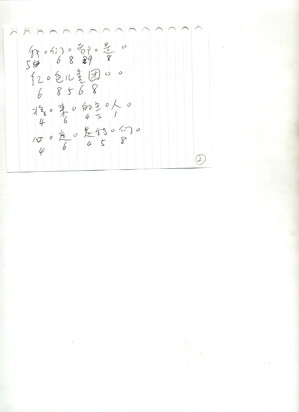 我。们。都。是。。
5 6 8 9 8
红。色儿童团。。
6 8 5 6 8
将。来。的主。人。
4 6 4 5 1
必。定。是的。们。
4 6 4 5 8
②